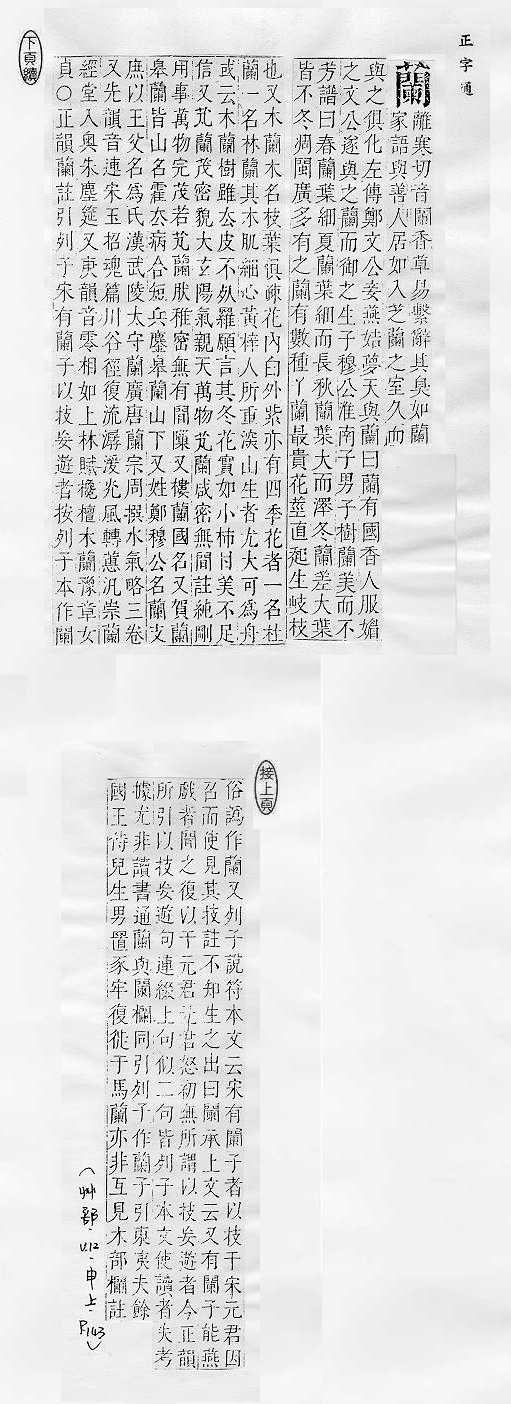 正字通
蘭
離寒切音闌香草易繫辭其臭如蘭
家語與善人居如入芝蘭之室久而
與之俱化左傳鄭文公妾燕姞夢天與蘭曰蘭有國香人服媚
之文公遂與之蘭而御之生子穆公淮南子男子樹蘭美而不
芳譜曰春蘭葉細夏蘭葉細而長秋蘭葉大而澤冬蘭差大葉
皆不冬凋閩廣多有之蘭有數種丫蘭最貴花莖直蔸生岐枝
也又木蘭木名枝葉俱疎花內白外紫亦有四季花者一名杜
蘭一名林蘭其木肌細心黃梓人所重深山生者尤大可為舟
或云木蘭樹雖去皮不死羅願言其冬花實如小柿甘美不足
信又芄蘭茂密貌大玄陽氣親天萬物芄蘭咸密無間註純剛
用事萬物完茂若芄蘭肰稚密無有間隟又樓蘭國名又賀蘭
皋蘭皆山名霍去病合短兵鏖皋蘭山下又姓鄭穆公名蘭支
庶以王父名為氏漢武陵太守蘭廣唐蘭宗周撰水氣略三卷
又先韻音連宋玉招魂篇川谷徑復流潺湲兮光風轉蕙汎崇蘭
經堂入奧朱塵筵又庚韻音零相如上林賦欃檀木蘭豫章女
貞〇正韻蘭註引列子宋有蘭子以技妄遊者按列子本作闌
下頁續
接上頁
俗譌作蘭又列子說符本文云宋有闌子者以技干宋元君因
召而使見其技註不知生之出曰闌承上文云又有闌子能燕
戲者聞之復以干元君元君怒初無所謂以技妄遊者今正韻
所引以技妄遊句連綴上句似二句皆列子本文使讀者失考
據尤非讀書通蘭與闌欄同引列子作蘭子引東夷夫餘
國王侍兒生男置豕牢復徙于馬蘭亦非互見木部欄註
(艸部.V.12.申上.P.143)